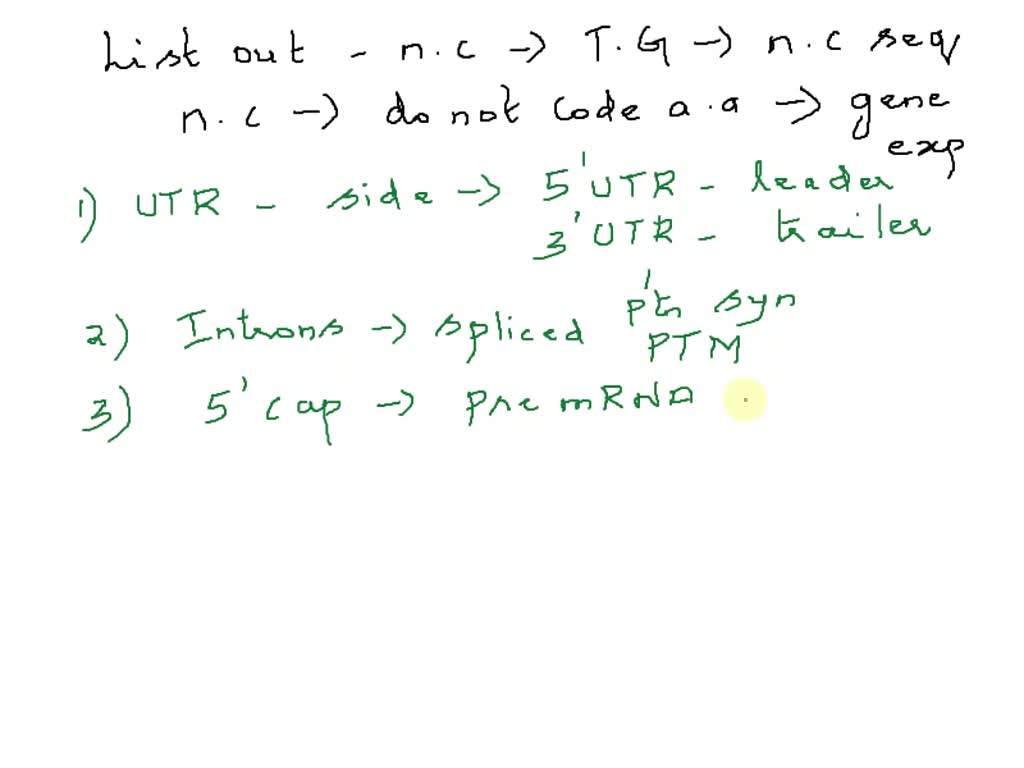 List out - n.c → T.G → n.c seq
n.c → do not code a.a → gene
exp
1) UTR - side → 5' UTR - leader
3' UTR - trailer
2) Introns → spliced p'tn syn
PTM
3) 5' cap → pre mRNA